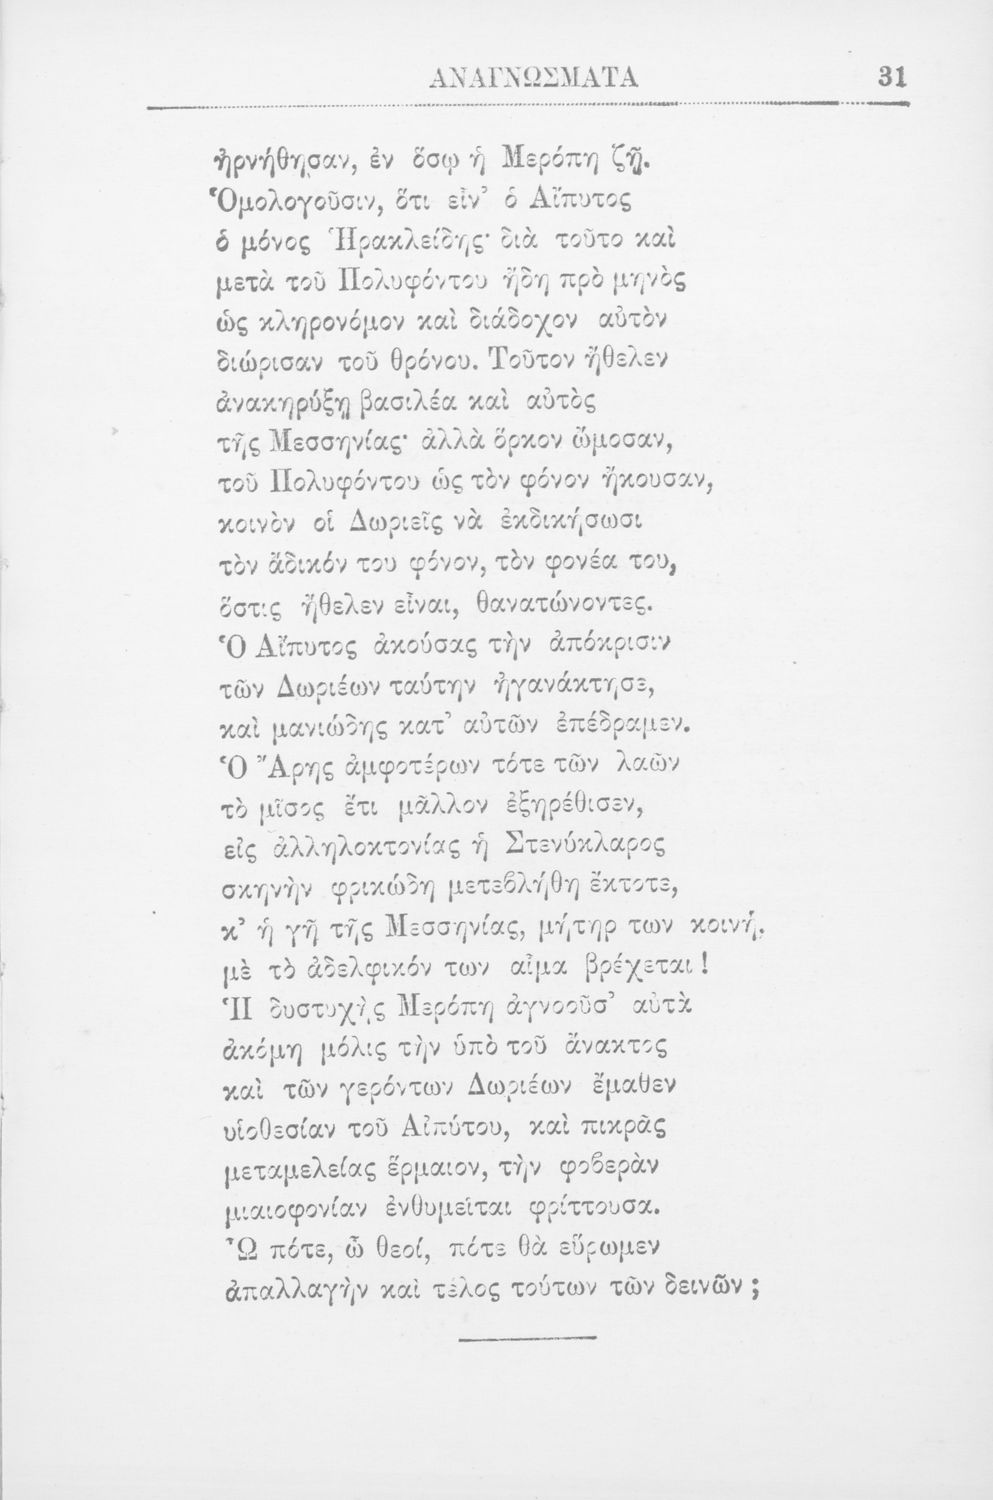 ΑΝΑΓΝΩΣΜΑΤΑ 31
ἠρνήθησαν, ἐν ὅσῳ ἡ Μερόπη ζῇ.
Ὁμολογοῦσιν, ὅτι εἶν’ ὁ Αἴπυτος
ὁ μόνος Ἡρακλείδης· διὰ τοῦτο καὶ
μετὰ τοῦ Πολυφόντου ἤδη πρὸ μηνὸς
ὡς κληρονόμον καὶ διάδοχον αὐτὸν
διώρισαν τοῦ θρόνου. Τοῦτον ἤθελεν
ἀνακηρύξῃ βασιλέα καὶ αὐτὸς
τῆς Μεσσηνίας· ἀλλὰ ὅρκον ὤμοσαν,
τοῦ Πολυφόντου ὡς τὸν φόνον ἤκουσαν,
κοινὸν οἱ Δωριεῖς νὰ ἐκδικήσωσι
τὸν ἄδικόν του φόνον, τὸν φονέα του,
ὅστις ἤθελεν εἶναι, θανατώνοντες.
Ὁ Αἴπυτος ἀκούσας τὴν ἀπόκρισιν
τῶν Δωριέων ταύτην ἠγανάκτησε,
καὶ μανιώδης κατ’ αὐτῶν ἐπέδραμεν.
Ὁ Ἄρης ἀμφοτέρων τότε τῶν λαῶν
τὸ μῖσος ἔτι μᾶλλον ἐξηρέθισεν,
εἰς ἀλληλοκτονίας ἡ Στενύκλαρος
σκηνὴν φρικώδη μετεβλήθη ἔκτοτε,
κ’ ἡ γῆ τῆς Μεσσηνίας, μήτηρ των κοινή,
μὲ τὸ ἀδελφικόν των αἷμα βρέχεται!
Ἡ δυστυχὴς Μερόπη ἀγνοοῦσ’ αὐτὰ
ἀκόμη μόλις τὴν ὑπὸ τοῦ ἄνακτος
καὶ τῶν γερόντων Δωριέων ἔμαθεν
υἱοθεσίαν τοῦ Αἰπύτου, καὶ πικρᾶς
μεταμελείας ἕρμαιον, τὴν φοβερὰν
μιαιοφονίαν ἐνθυμεῖται φρίττουσα.
Ὦ πότε, ὦ θεοί, πότε θὰ εὕρωμεν
ἀπαλλαγὴν καὶ τέλος τούτων τῶν δεινῶν;